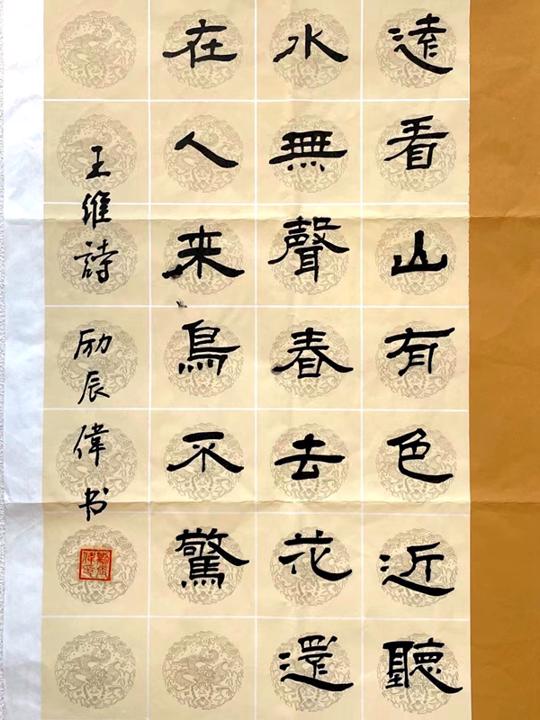 遠看山有色近聽
水無聲春去花還
在人来鳥不驚
王維詩 励辰偉书